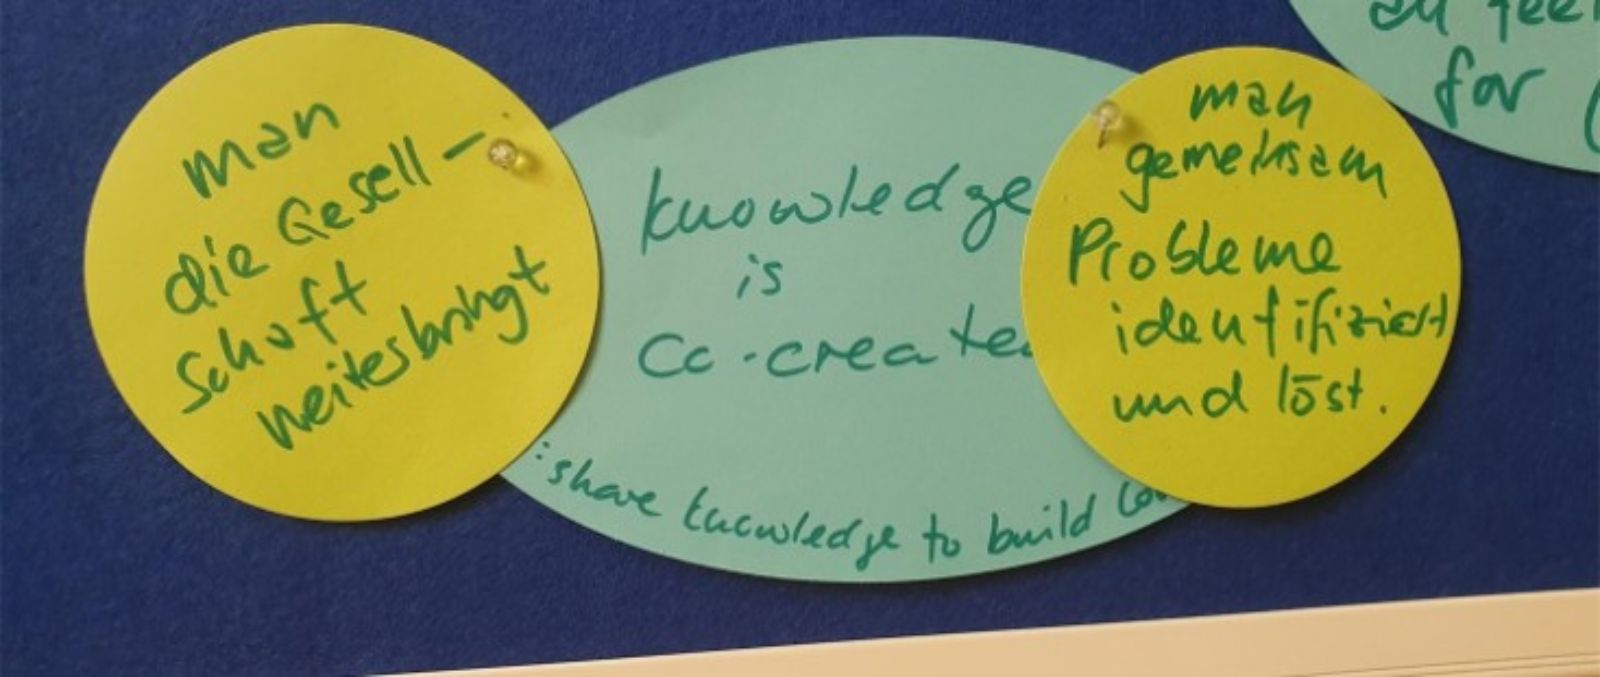 man
die Gesell-
schaft
weiterbringt
knowledge
is
co-created
: share knowledge to build
man
gemeinsam
Probleme
identifiziert
und löst.
for